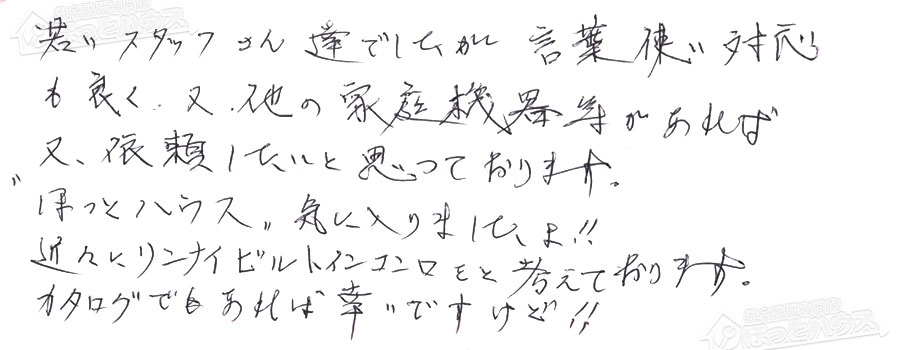 若いスタッフさん達でしたが 言葉使い対応
も良く、又、他の家庭機器等があれば
又、依頼したいと思っております。
"ほっとハウス"気に入りましたよ!!
近々にリンナイビルトインコンロをと考えております。
カタログでもあれば幸いですけど!!
ほっとハウス